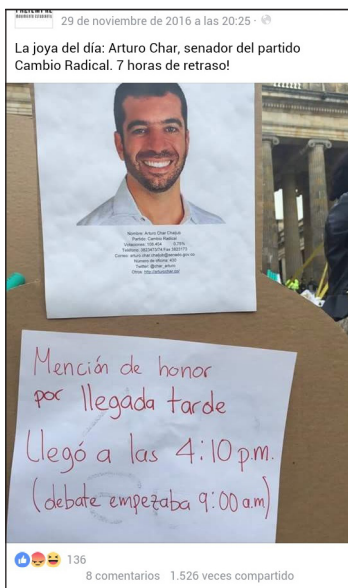 29 de noviembre de 2016 a las 20:25 ·
La joya del día: Arturo Char, senador del partido
Cambio Radical. 7 horas de retraso!
Nombre: Arturo Char Chaljub
Partido: Cambio Radical
Mención de honor
por llegada tarde
Llegó a las 4:10 p.m.
(debate empezaba 9:00 a.m)
136
8 comentarios 1.526 veces compartido